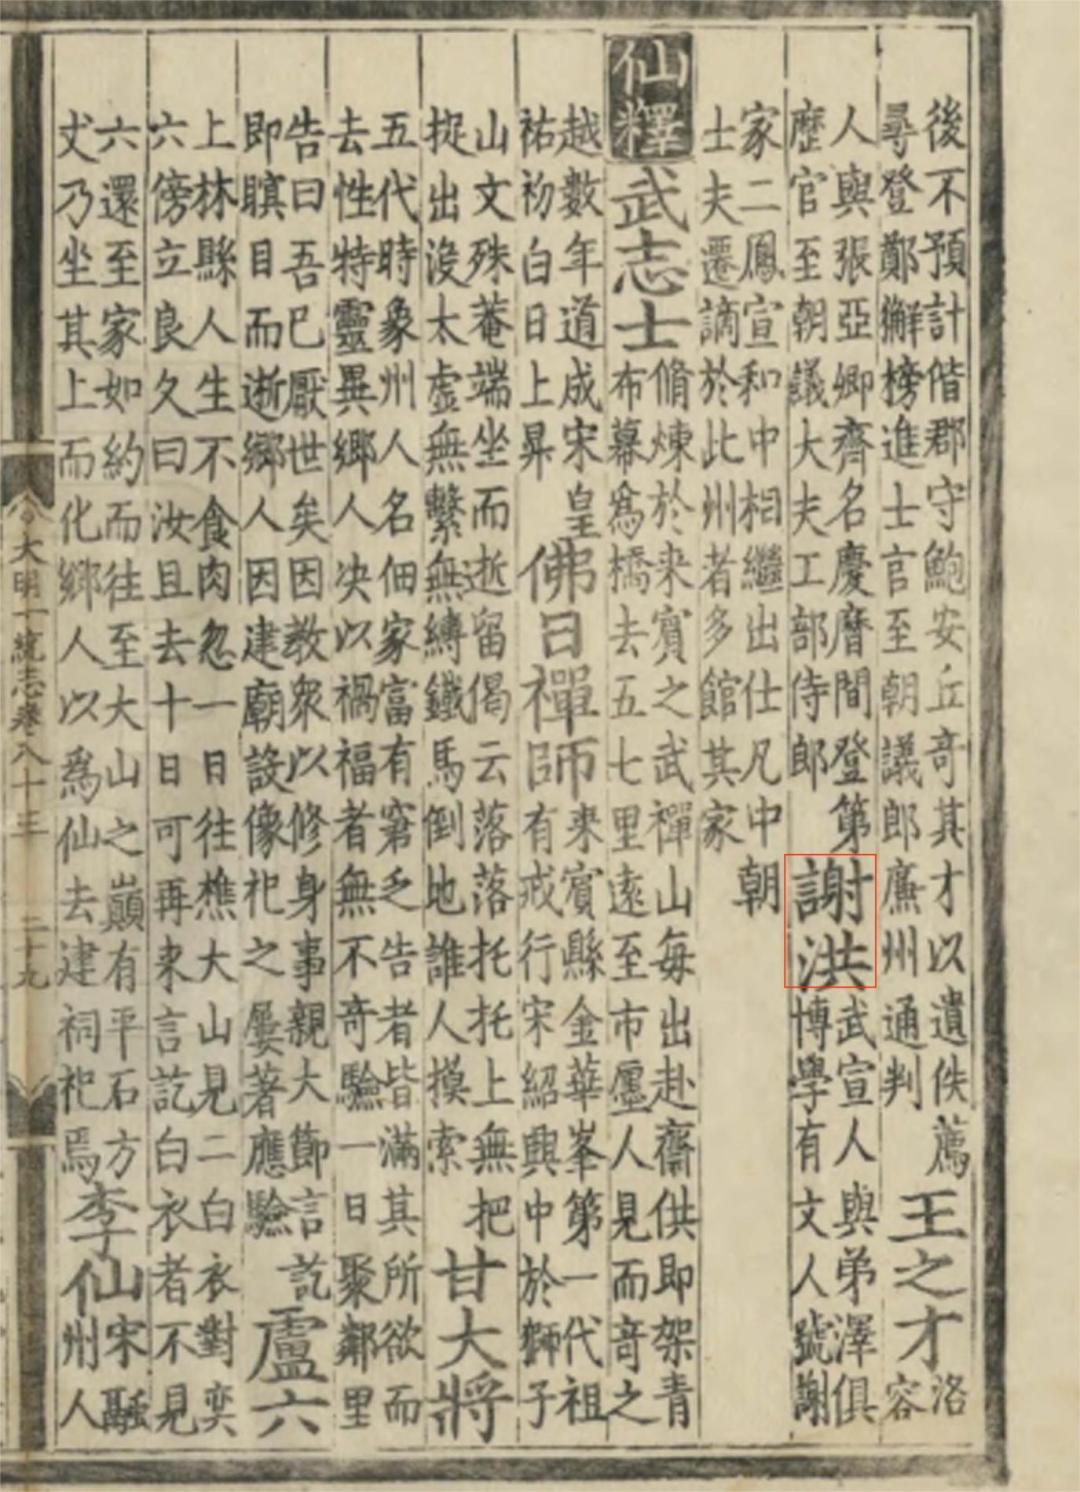 後不預計偕郡守鮑安丘竒其才以遺佚薦
尋登鄭獬榜進士官至朝議郎廉州通判
王之才
洛
容
人與張亞卿齊名慶曆間登第
歷官至朝議大夫工部侍郎
謝洪
武宣人與弟澤俱
博學有文人號謝
家二鳳宣和中相繼出仕凡中朝
士夫遷謫於此州者多館其家
仙釋
武志士
脩煉於来賓之武禪山每出赴齋供即架青
布幕為橋去五七里遠至市廛人見而竒之
越數年道成宋皇
祐初白日上昇
佛日禪師
来賓縣金華峯第一代祖
有戒行宋紹興中於獅子
山文殊菴端坐而逝留偈云落落托托上無把
捉出没太虚無繫無縛鐵馬倒地誰人摸索
甘大將
五代時象州人名佃家富有窮乏告者皆滿其所欲而
去性特靈異鄉人决以禍福者無不竒驗一日聚鄰里
告曰吾已厭世矣因教衆以修身事親大節言訖
即瞑目而逝鄉人因建廟設像祀之屢著應驗
盧六
上林縣人生不食肉忽一日往樵大山見二白衣對奕
六傍立良久曰汝且去十日可再来言訖白衣者不見
六還至家如約而往至大山之巔有平石方
丈乃坐其上而化鄉人以為仙去建祠祀焉
李仙
宋融
州人
大明一統志卷八十三
二十九